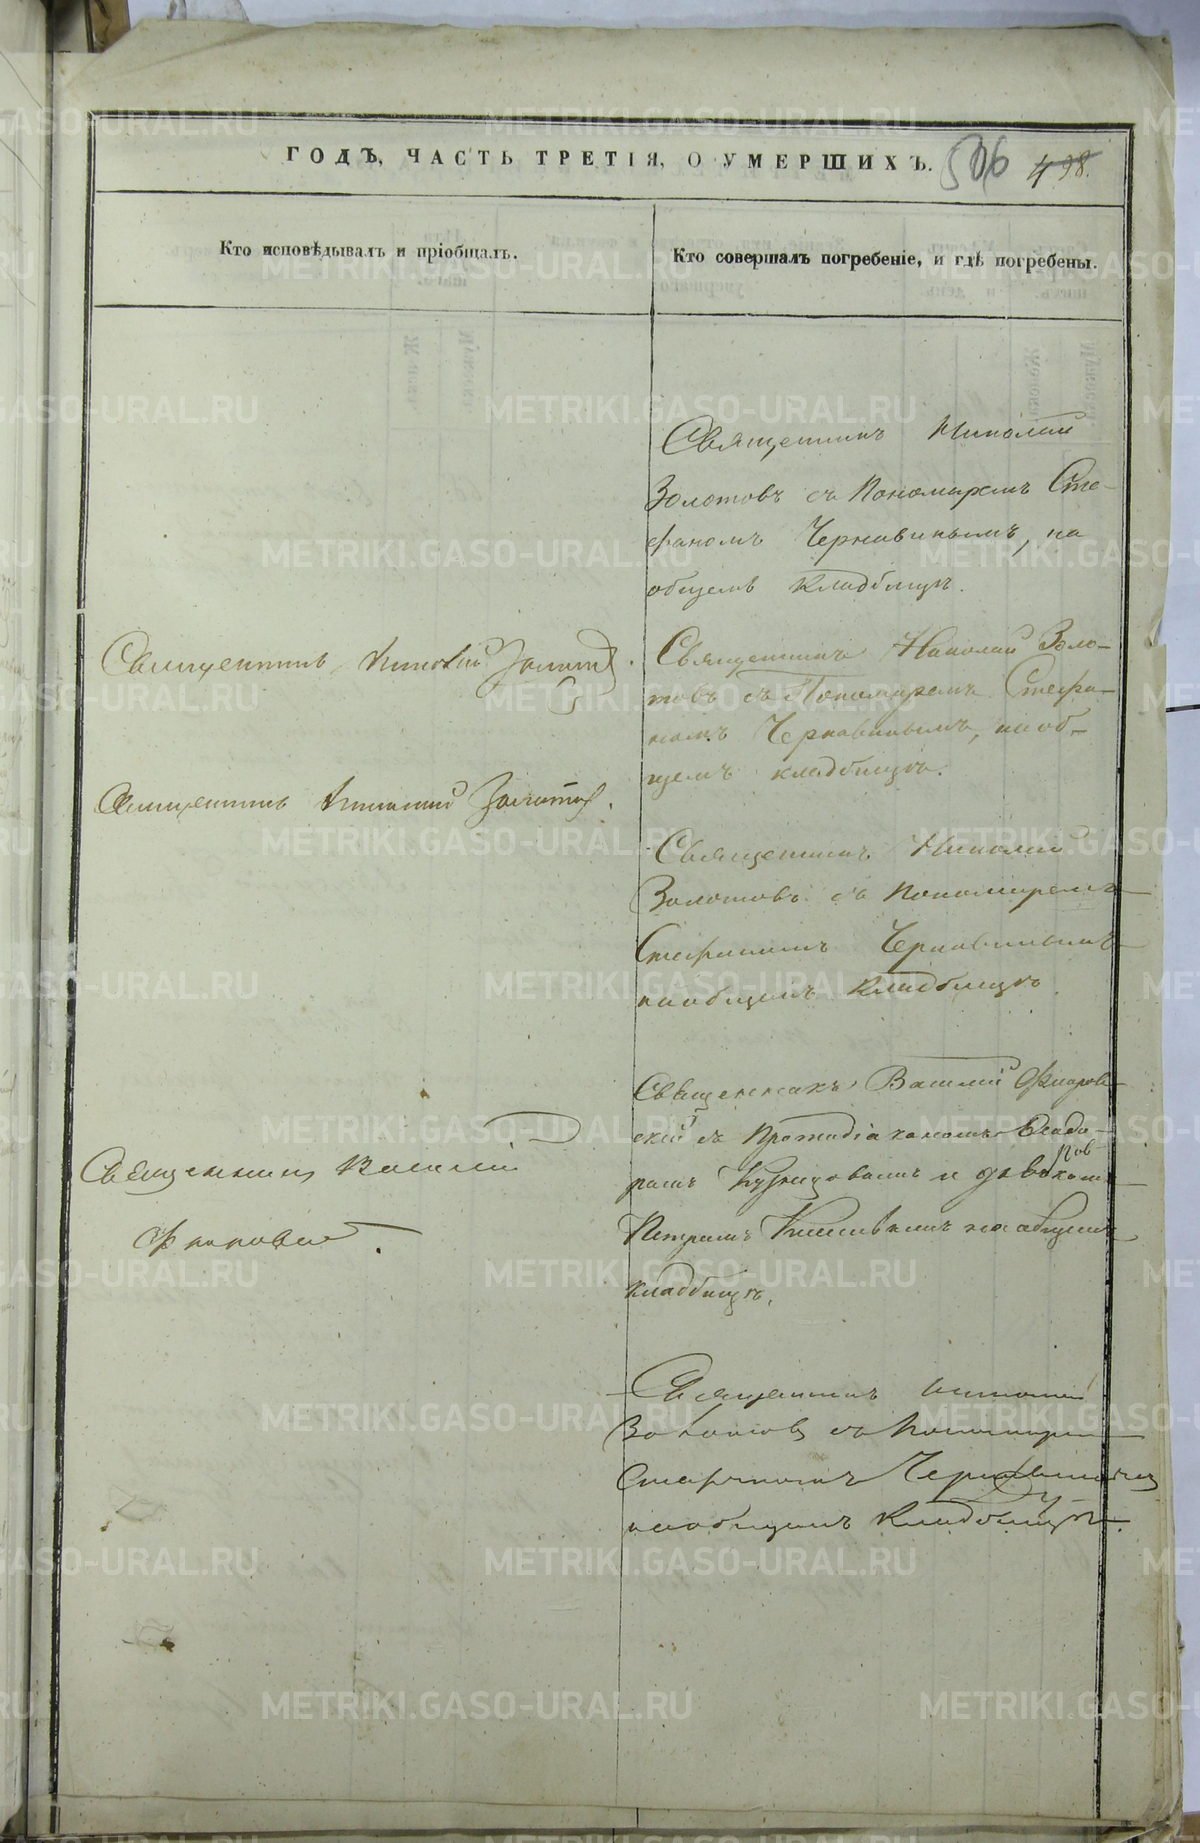 ГОДЪ, ЧАСТЬ ТРЕТІЯ, О УМЕРШИХЪ. 506 498.
Кто исповѣдывалъ и пріобщалъ.
Кто совершалъ погребеніе, и гдѣ погребены.
Священникъ Николай
Золотовъ съ Пономаремъ Сте-
фаномъ Чернавинымъ, на
общемъ кладбищѣ.
Священникъ Николай Золотовъ.
Священникъ Николай Золо-
товъ съ Пономаремъ Стефа-
номъ Чернавинымъ, на об-
щемъ кладбищѣ.
Священникъ Николай Золотовъ.
Священникъ Николай
Золотовъ съ Пономаремъ
Стефаномъ Чернавинымъ
на общемъ кладбищѣ.
Священникъ Василій
Священникъ Василій
скій съ Протодіакономъ
рамъ Кузнецовымъ и
Петромъ на общемъ
кладбищѣ.
Священникъ Николай
Золотовъ съ Пономаремъ
Стефаномъ Чернавинымъ
на общемъ кладбищѣ.
METRIKI.GASO-URAL.RU